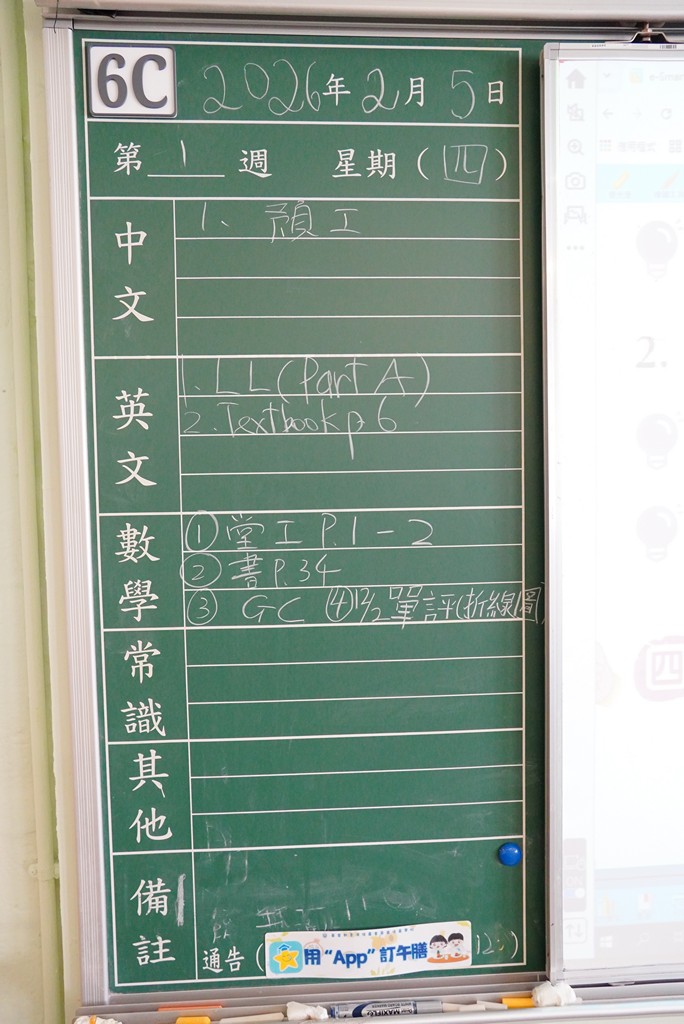 6C 2026年2月5日
第1週 星期(四)
中文
1、預工
英文
1. LL (Part A)
2. Textbook p.6
數學
① 堂工 P.1-2
② 書 P.34
③ GC ④12/2單評(折線圖)
常識
其他
備註
通告(
用"App"訂午膳
2.
四